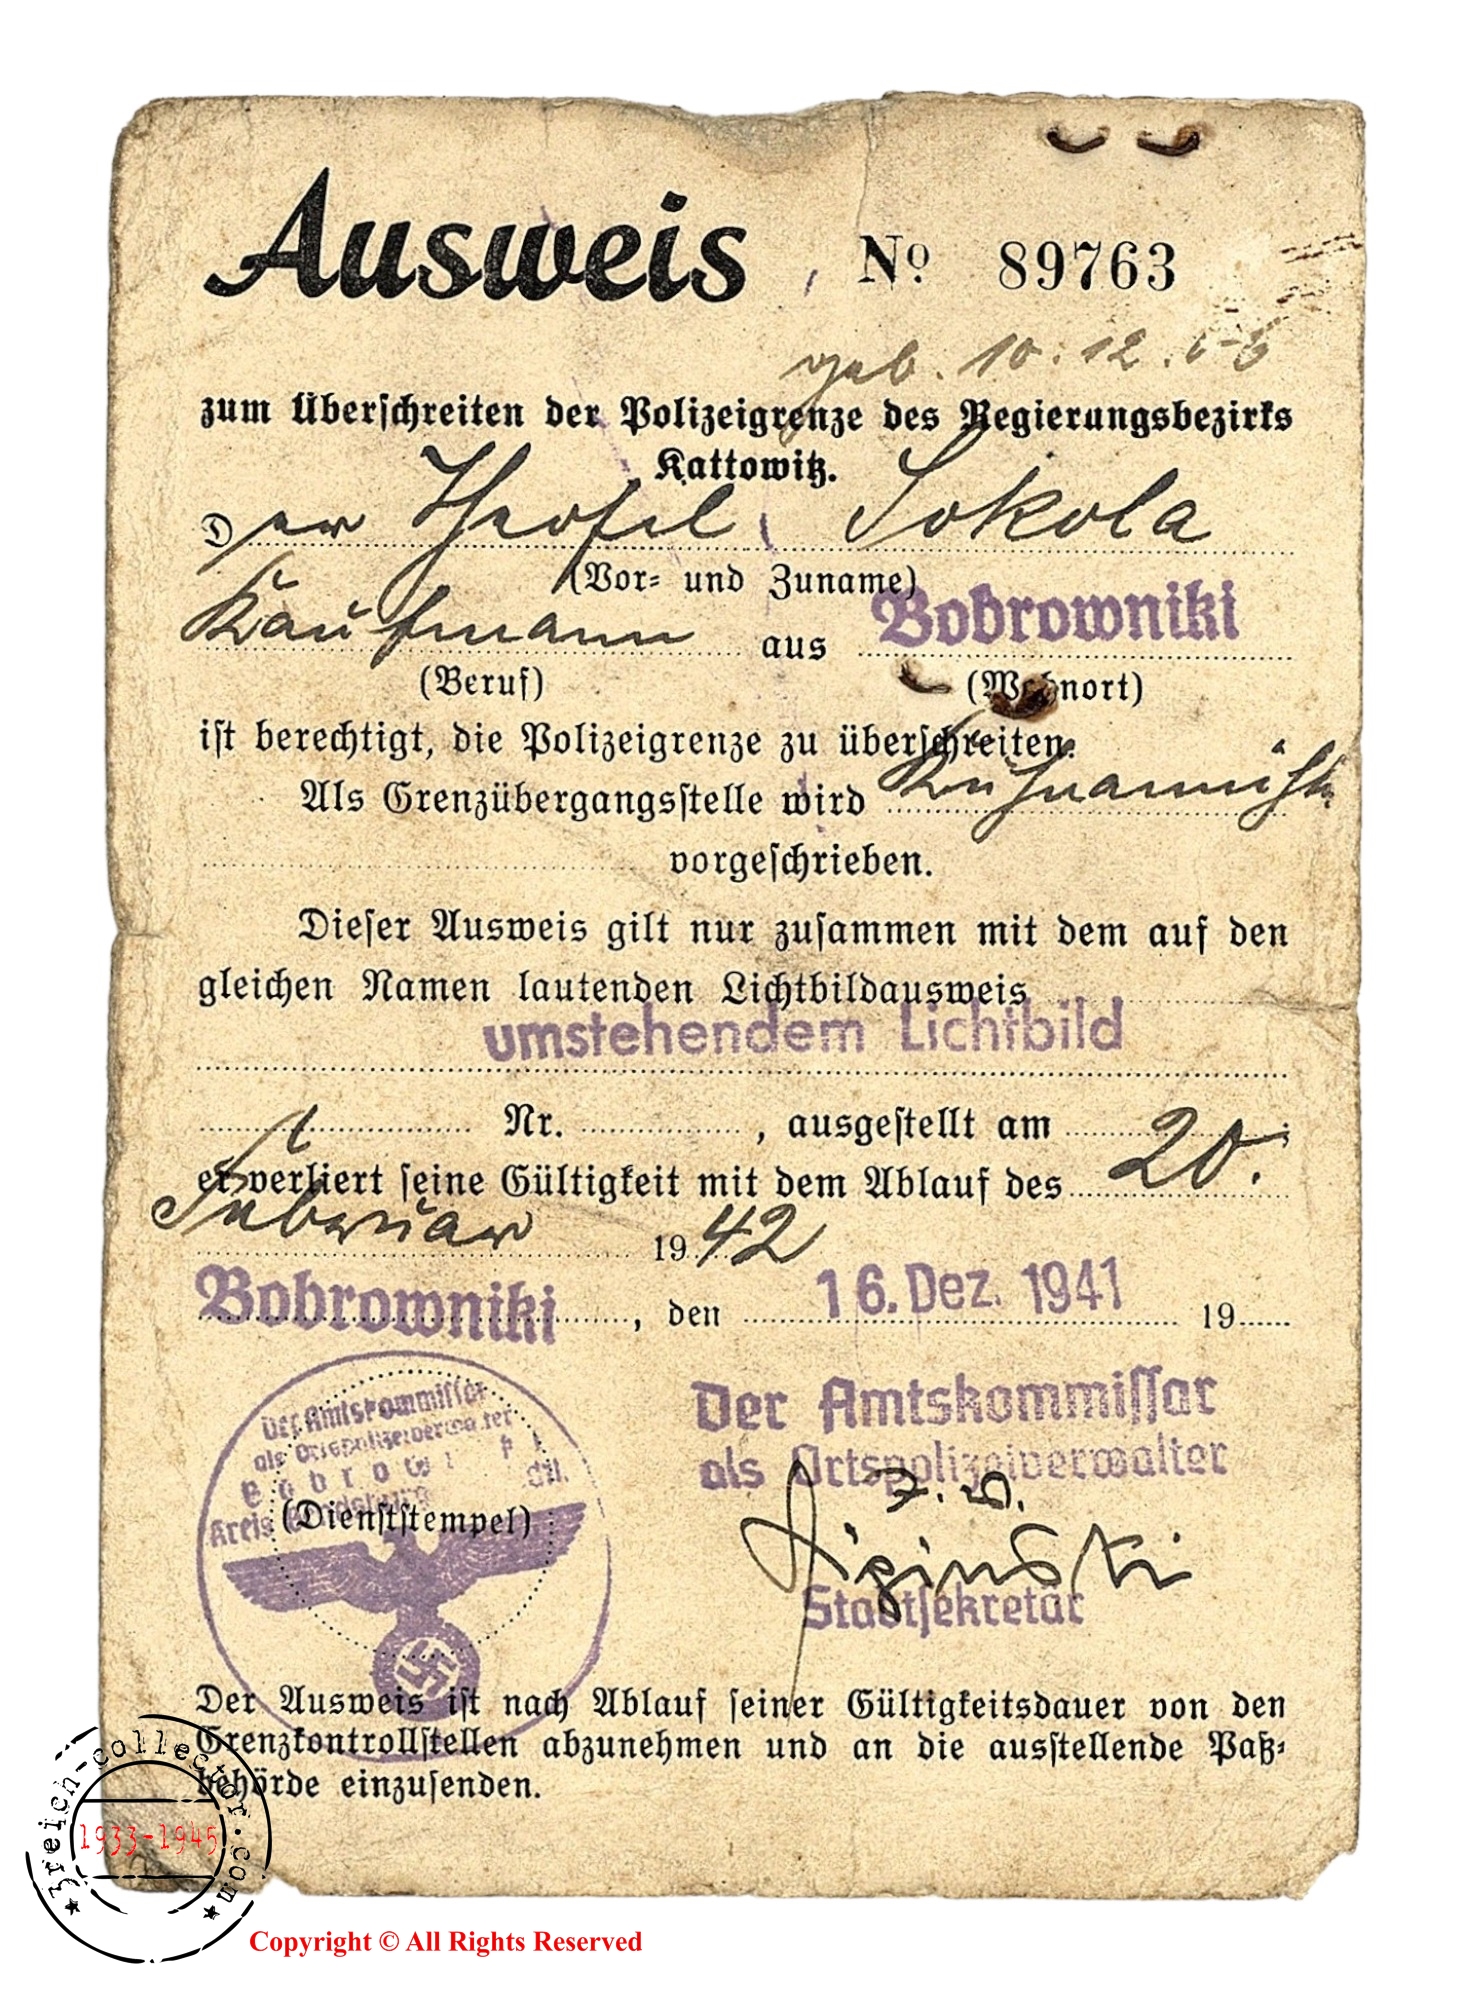 Ausweis № 89763
geb. 10.12.
zum Überschreiten der Polizeigrenze des Regierungsbezirks
Kattowitz.
Der Theofil Sokola
(Vor- und Zuname)
Kaufmann aus Bobrowniki
(Beruf) (Wohnort)
ist berechtigt, die Polizeigrenze zu überschreiten.
Als Grenzübergangsstelle wird
vorgeschrieben.
Dieser Ausweis gilt nur zusammen mit dem auf den
gleichen Namen lautenden Lichtbildausweis
umstehendem Lichtbild
Nr. , ausgestellt am ;
er verliert seine Gültigkeit mit dem Ablauf des 20.
Februar 1942
Bobrowniki, den 16. Dez. 1941 19
Der Amtskommissar
als Ortspolizeiverwalter
Der Amtskommissar
als Ortspolizeiverwalter
J. V.
Kreis
(Dienststempel)
Stadtsekretär
Der Ausweis ist nach Ablauf seiner Gültigkeitsdauer von den
Grenzkontrollstellen abzunehmen und an die ausstellende Paß-
behörde einzusenden.
3reich-collector.com
1933-1945
Copyright © All Rights Reserved